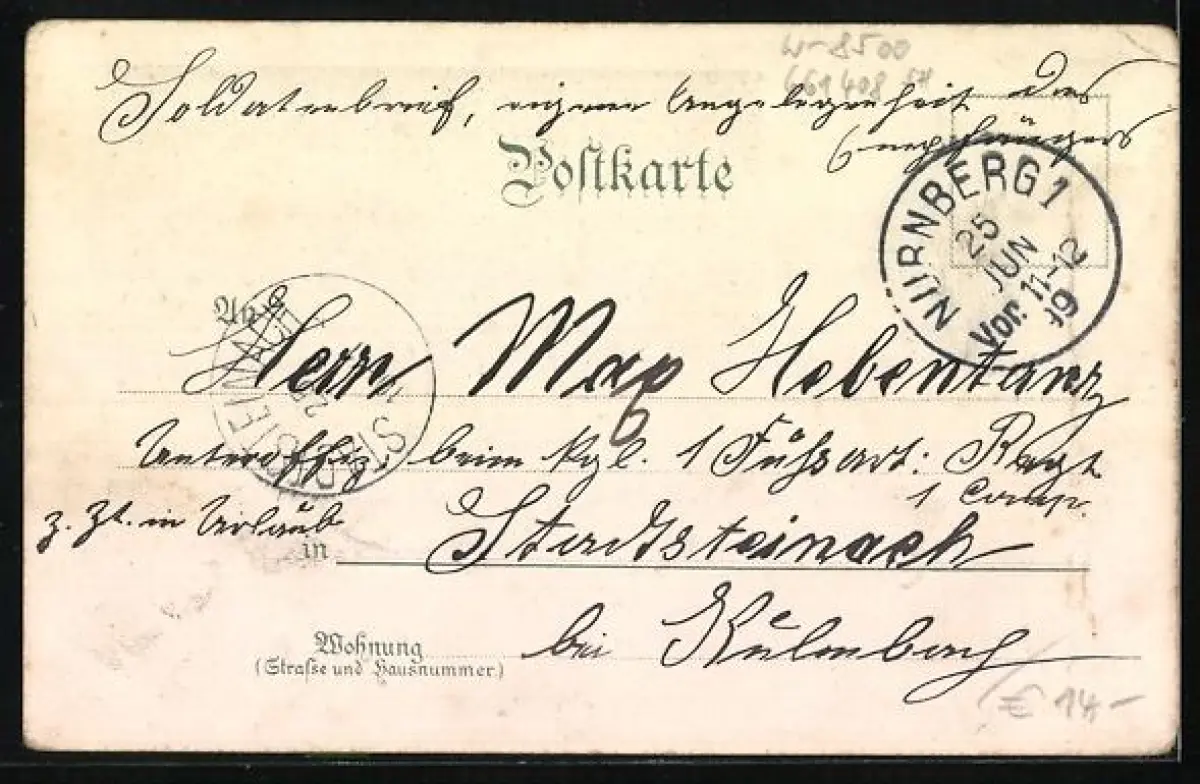 W-8500
661408 SH
Soldatenbrief, eigene Angelegenheit des
Empfängers
Postkarte
NÜRNBERG 1
25
JUN
Vor. 11-12
99
An
Herrn Max Hebentanz
Unteroffiz. beim Kgl. 1 Fußart: Regt
1 Comp.
z. Zt. in Urlaub
in Stadtsteinach
STADTSTEINACH
Wohnung
(Straſse und Hausnummer.)
bei Kulmbach
€ 14-